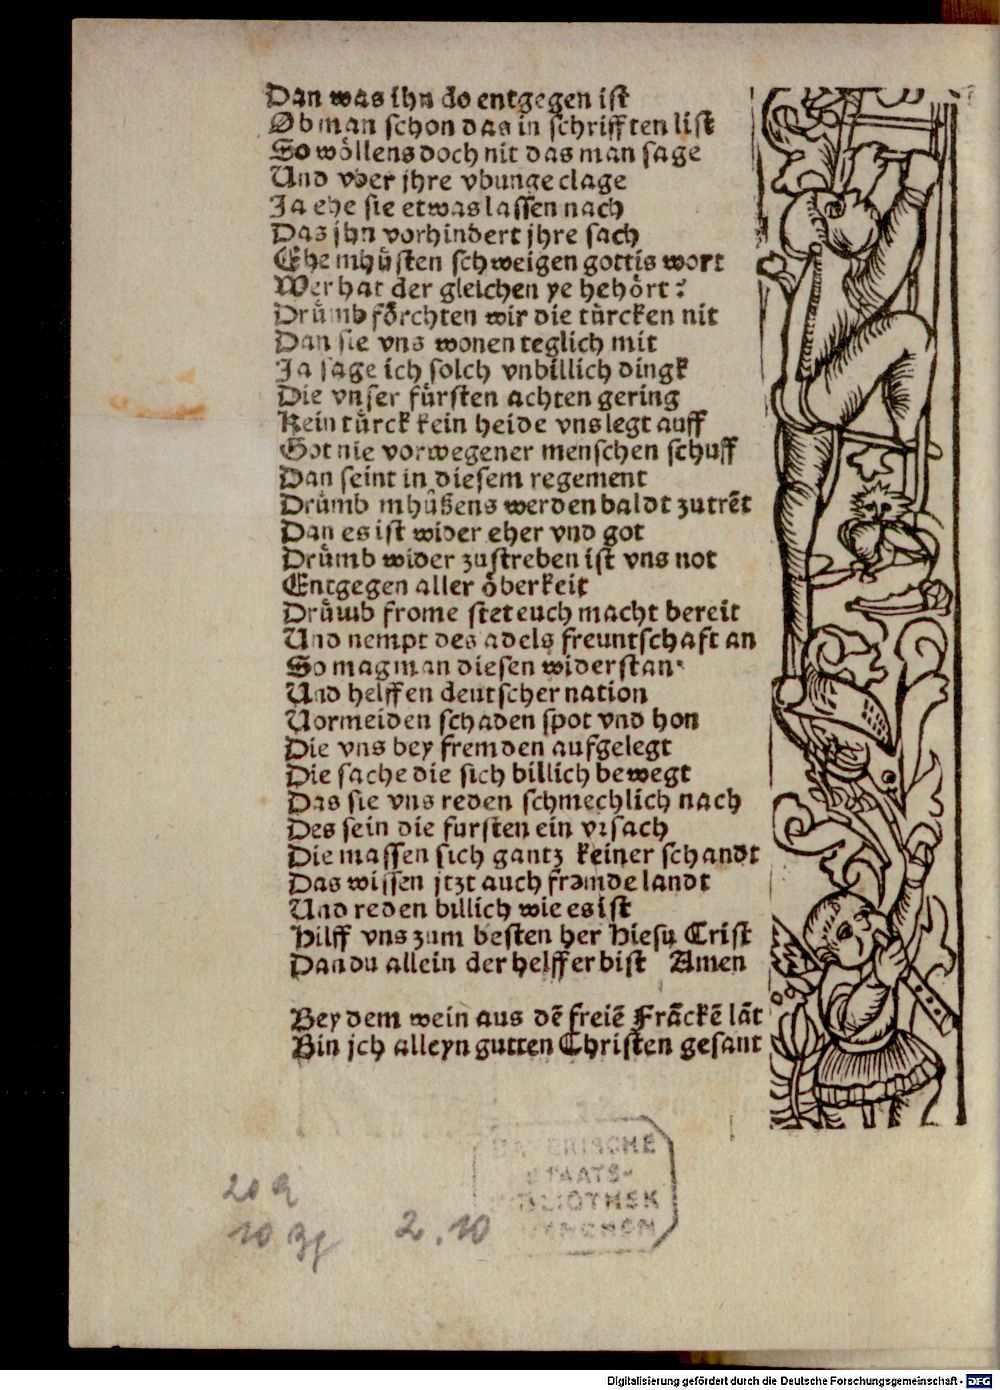 Dan was ihn do entgegen ist
Ob man schon das in schrifften list
So wöllens doch nit das man sage
Und vber jhre vbunge clage
Ja ehe sie etwas lassen nach
Das jhn vorhindert jhre sach
Ehe mhůsten schweigen gottis wort
Wer hat der gleichen ye hehört?
Drůmb förchten wir die tůrcken nit
Dan sie vns wonen teglich mit
Ja sage ich solch vnbillich dingk
Die vnser fürsten achten gering
Kein tůrck kein heide vns legt auff
Got nie vorwegener menschen schuff
Dan seint in diesem regement
Drůmb mhůßens werden baldt zutrēt
Dan es ist wider eher vnd got
Drůmb wider zustreben ist vns not
Entgegen aller öberkeit
Drůmb frome stet euch macht bereit
Und nempt des adels freuntschafft an
So mag man diesen widerstan
Und helffen deutscher nation
Vormeiden schaden spot vnd hon
Die vns bey fremden aufgelegt
Die sache die sich billich bewegt
Das sie vns reden schmechlich nach
Des sein die fursten ein vrsach
Die massen sich gantz keiner schandt
Das wissen jtzt auch fremde landt
Und reden billich wie es ist
Hilff vns zum besten her Hiesu Crist
Dan du allein der helffer bist Amen
Bey dem wein aus dē freiē Frāckē lāt
Bin jch alleyn gutten Christen gesant
BAYERISCHE
STAATS-
BIBLIOTHEK
MÜNCHEN
2.10
Digitalisierung gefördert durch die Deutsche Forschungsgemeinschaft - DFG